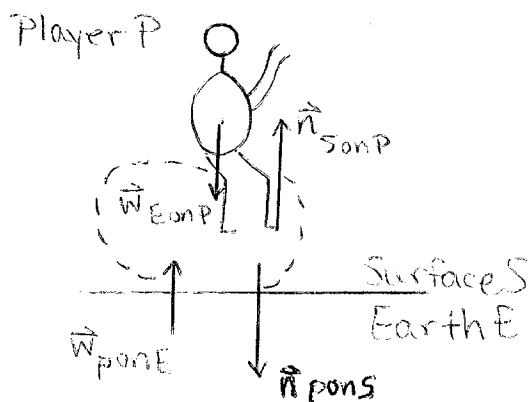 Player P
n⃗ SonP
w⃗ EonP
Surface S
Earth E
w⃗ ponE
n⃗ pons